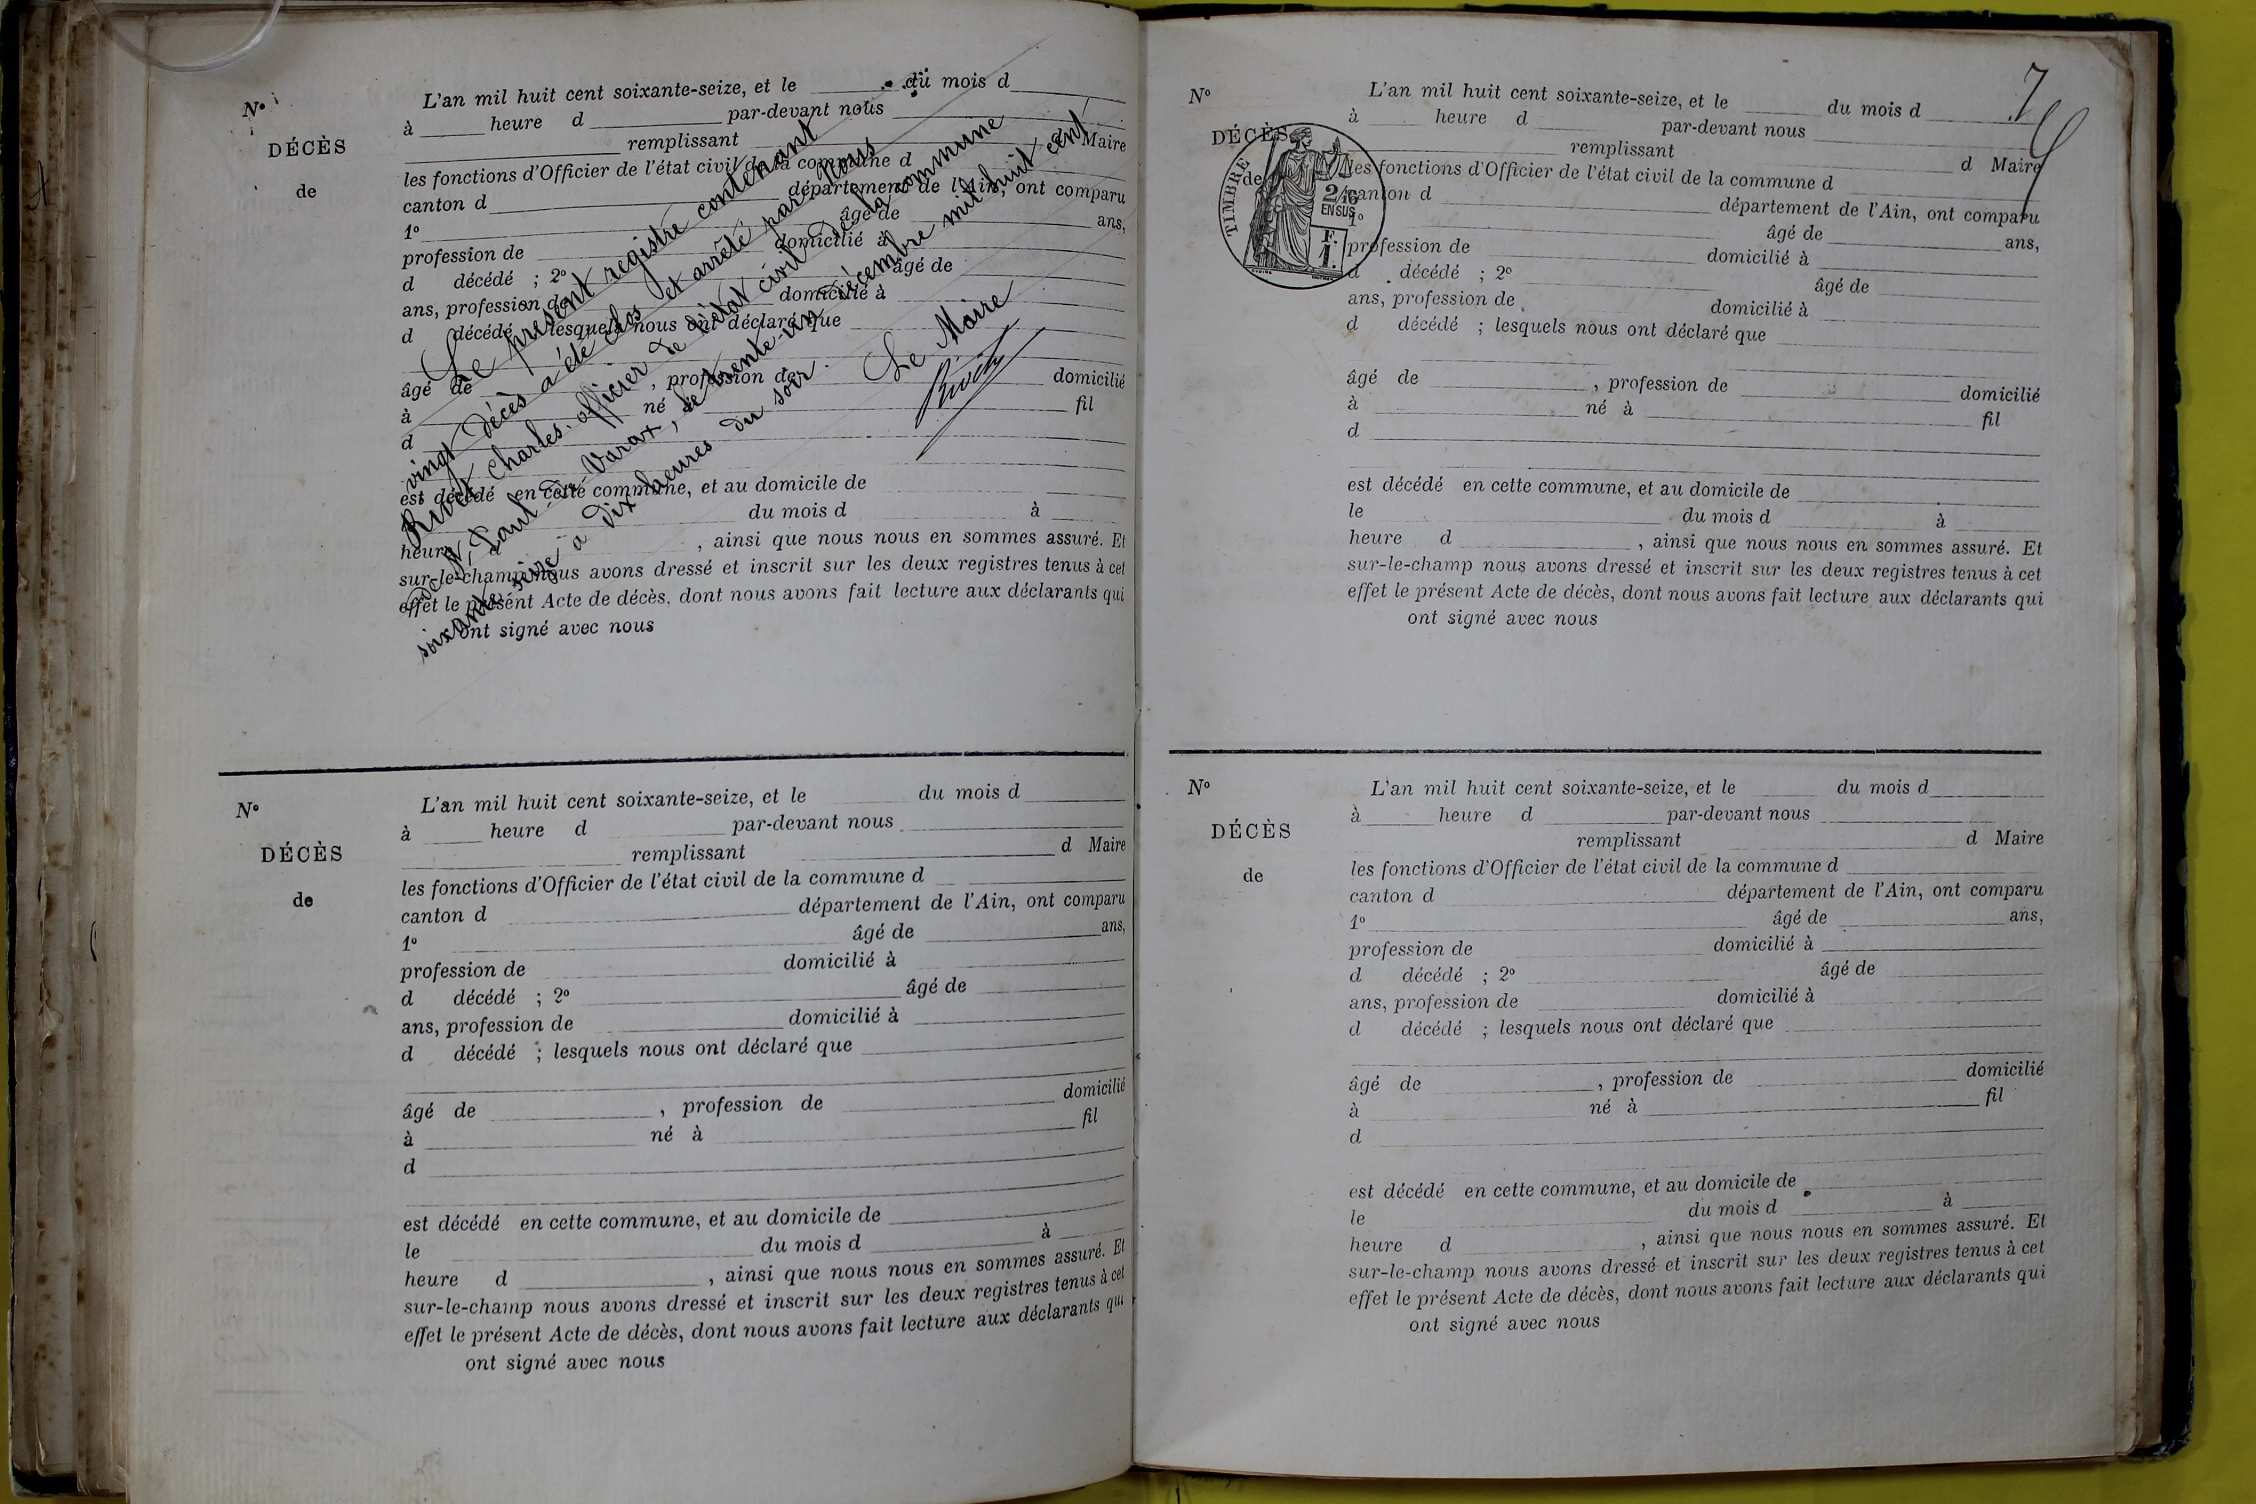 N°
DÉCÈS
de
L'an mil huit cent soixante-seize, et le du mois d
à heure d par-devant nous
remplissant Maire
les fonctions d'Officier de l'état civil de la commune d
canton d département de l'Ain, ont comparu
1° âgé de ans,
profession de domicilié à
d décédé ; 2° âgé de
ans, profession de domicilié à
d décédé ; lesquels nous ont déclaré que
âgé de , profession de domicilié
à né à fil
d
est décédé en cette commune, et au domicile de
le du mois d à
heure d , ainsi que nous nous en sommes assuré. Et
sur-le-champ nous avons dressé et inscrit sur les deux registres tenus à cet
effet le présent Acte de décès, dont nous avons fait lecture aux déclarants qui
ont signé avec nous
Le présent registre contenant
vingt décès a été clos et arrêté par Nous
Rivet Charles officier de l'état civil de la commune
de St Paul de Varax, le trente-un décembre mil huit cent
soixante seize à dix heures du soir.
Le Maire
Rivet
N°
DÉCÈS
de
L'an mil huit cent soixante-seize, et le du mois d
à heure d par-devant nous
remplissant d Maire
les fonctions d'Officier de l'état civil de la commune d
canton d département de l'Ain, ont comparu
1° âgé de ans,
profession de domicilié à
d décédé ; 2° âgé de
ans, profession de domicilié à
d décédé ; lesquels nous ont déclaré que
âgé de , profession de domicilié
à né à fil
d
est décédé en cette commune, et au domicile de
le du mois d à
heure d , ainsi que nous nous en sommes assuré. Et
sur-le-champ nous avons dressé et inscrit sur les deux registres tenus à cet
effet le présent Acte de décès, dont nous avons fait lecture aux déclarants qui
ont signé avec nous
7
N°
DÉCÈS
de
TIMBRE
2/10
EN SUS
F.
1.
L'an mil huit cent soixante-seize, et le du mois d
à heure d par-devant nous
remplissant d Maire
les fonctions d'Officier de l'état civil de la commune d
canton d département de l'Ain, ont comparu
1° âgé de ans,
profession de domicilié à
d décédé ; 2° âgé de
ans, profession de domicilié à
d décédé ; lesquels nous ont déclaré que
âgé de , profession de domicilié
à né à fil
d
est décédé en cette commune, et au domicile de
le du mois d à
heure d , ainsi que nous nous en sommes assuré. Et
sur-le-champ nous avons dressé et inscrit sur les deux registres tenus à cet
effet le présent Acte de décès, dont nous avons fait lecture aux déclarants qui
ont signé avec nous
N°
DÉCÈS
de
L'an mil huit cent soixante-seize, et le du mois d
à heure d par-devant nous
remplissant d Maire
les fonctions d'Officier de l'état civil de la commune d
canton d département de l'Ain, ont comparu
1° âgé de ans,
profession de domicilié à
d décédé ; 2° âgé de
ans, profession de domicilié à
d décédé ; lesquels nous ont déclaré que
âgé de , profession de domicilié
à né à fil
d
est décédé en cette commune, et au domicile de
le du mois d à
heure d , ainsi que nous nous en sommes assuré. Et
sur-le-champ nous avons dressé et inscrit sur les deux registres tenus à cet
effet le présent Acte de décès, dont nous avons fait lecture aux déclarants qui
ont signé avec nous